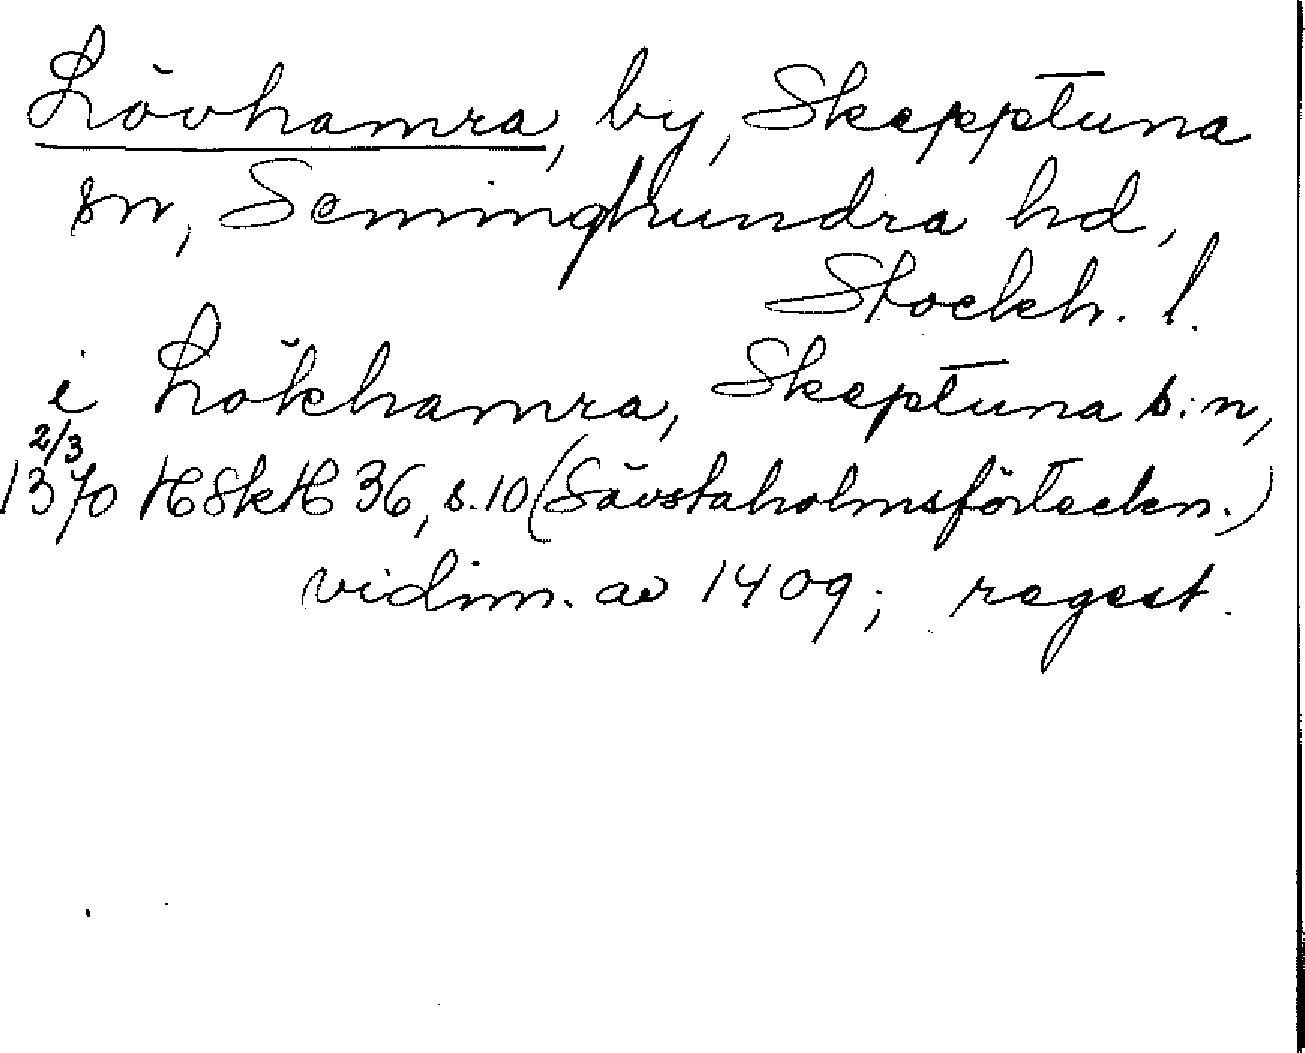 Lövhamra, by, Skepptuna
sn, Seminghundra hd,
Stockh. l.
i Lökhamra, Skeptuna s:n,
2/3
1370 HSkH 36, s. 10 (Sävstaholmsförteckn.)
vidim. av 1409; regest.